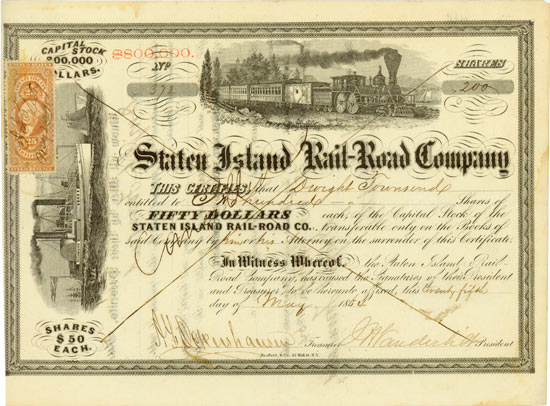 CAPITAL STOCK
800,000
DOLLARS.
$800,000.
Nº
372
SHARES
200
Staten Island Rail-Road Company
THIS CERTIFIES, that Dwight Townsend
entitled to Two hundred Shares of
FIFTY DOLLARS each, of the Capital Stock of the
STATEN ISLAND RAIL-ROAD CO., transferable only on the Books of
said Company by him or his Attorney on the surrender of this Certificate.
In Witness Whereof, the Staten Island Rail-
Road Company, has caused the Signatures of their President
and Treasurer to be hereunto affixed, this twenty fifth
day of May
Treasurer J H Vanderbilt President
SHARES
$50
EACH.